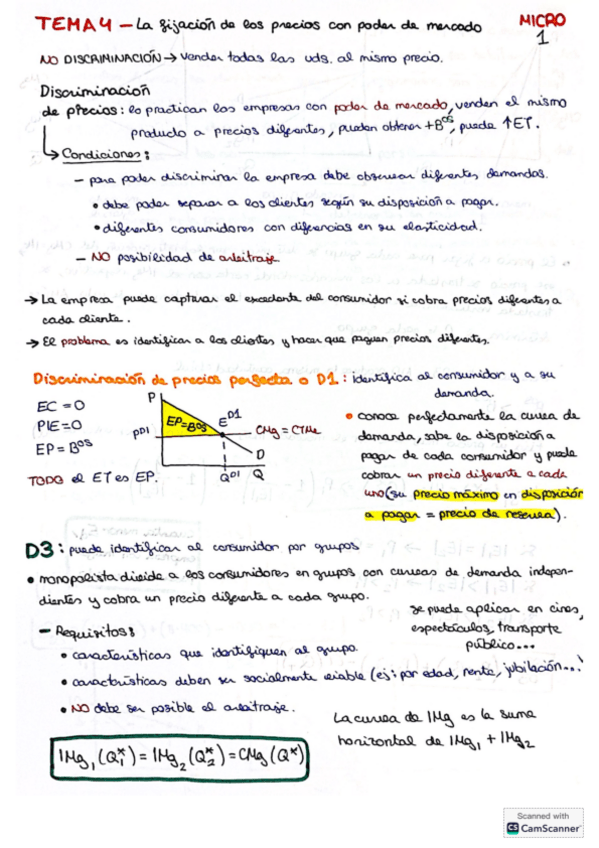 TEMA 4 – La fijación de los precios con poder de mercado
MICRO
1
NO DISCRIMINACIÓN → vender todas las uds. al mismo precio.
Discriminación
de precios: lo practican las empresas con poder de mercado, venden el mismo
producto a precios diferentes, pueden obtener +Bos, puede ↑ET.
↳ Condiciones:
– para poder discriminar la empresa debe observar diferentes demandas.
• debe poder separar a los clientes según su disposición a pagar.
• diferentes consumidores con diferencias en su elasticidad.
– NO posibilidad de arbitraje.
→ La empresa puede capturar el excedente del consumidor si cobra precios diferentes a
cada cliente.
→ El problema es identificar a los clientes y hacer que paguen precios diferentes.
Discriminación de precios perfecta o D1: identifica al consumidor y a su
demanda.
EC = 0
PIE = 0
EP = Bos
TODO el ET es EP.
P
EP=Bos
E D1
PD1
CMg = CTMe
D
QD1
Q
• conoce perfectamente la curva de
demanda, sabe la disposición a
pagar de cada consumidor y puede
cobrar un precio diferente a cada
uno (su precio máximo en disposición
a pagar = precio de reserva).
D3: puede identificar al consumidor por grupos
• monopolista divide a los consumidores en grupos con curvas de demanda indepen-
dientes y cobra un precio diferente a cada grupo.
Se puede aplicar en cines,
espectáculos, transporte
público...
– Requisitos:
• características que identifiquen al grupo.
• características deben ser socialmente viable (ej: por edad, renta, jubilación...)
• NO debe ser posible el arbitraje.
La curva de IMg es la suma
horizontal de IMg1 + IMg2
IMg1 (Q1*) = IMg2 (Q2*) = CMg (Q*)
Scanned with
CS CamScanner